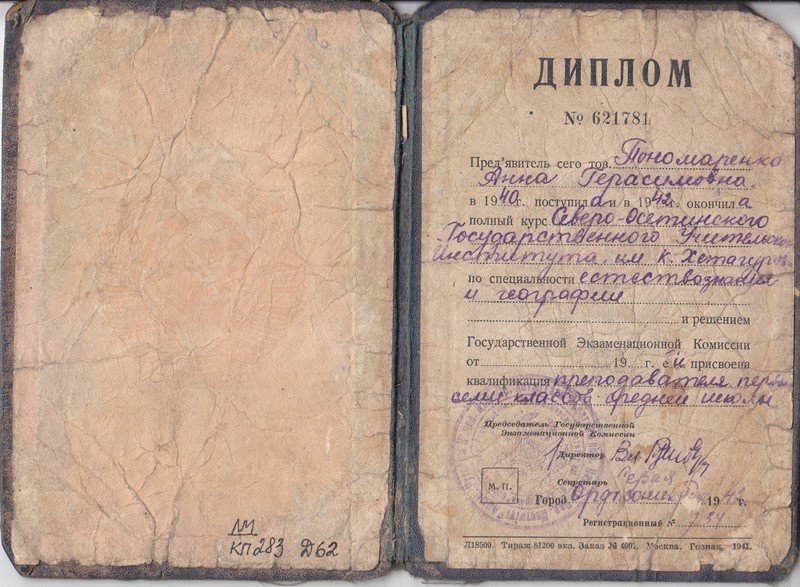 ЛМ
КП 283 Д62
ДИПЛОМ
№ 621781
Пред'явитель сего тов. Пономаренко
Анна Герасимовна
в 1940 г. поступила и в 1942 г. окончила
полный курс Северо-Осетинского
Государственного Учительского
Института им. К. Хетагурова
по специальности естествознания
и географии
и решением
Государственной Экзаменационной Комиссии
от 19 г. ей присвоена
квалификация преподавателя первых
семи классов средней школы
Председатель Государственной
Экзаменационной Комиссии
Директор
Секретарь
М. П.
Город Орджоникидзе 194
Регистрационный №
Л18509. Тираж 81200 экз. Заказ № 4001. Москва. Гознак. 1941.